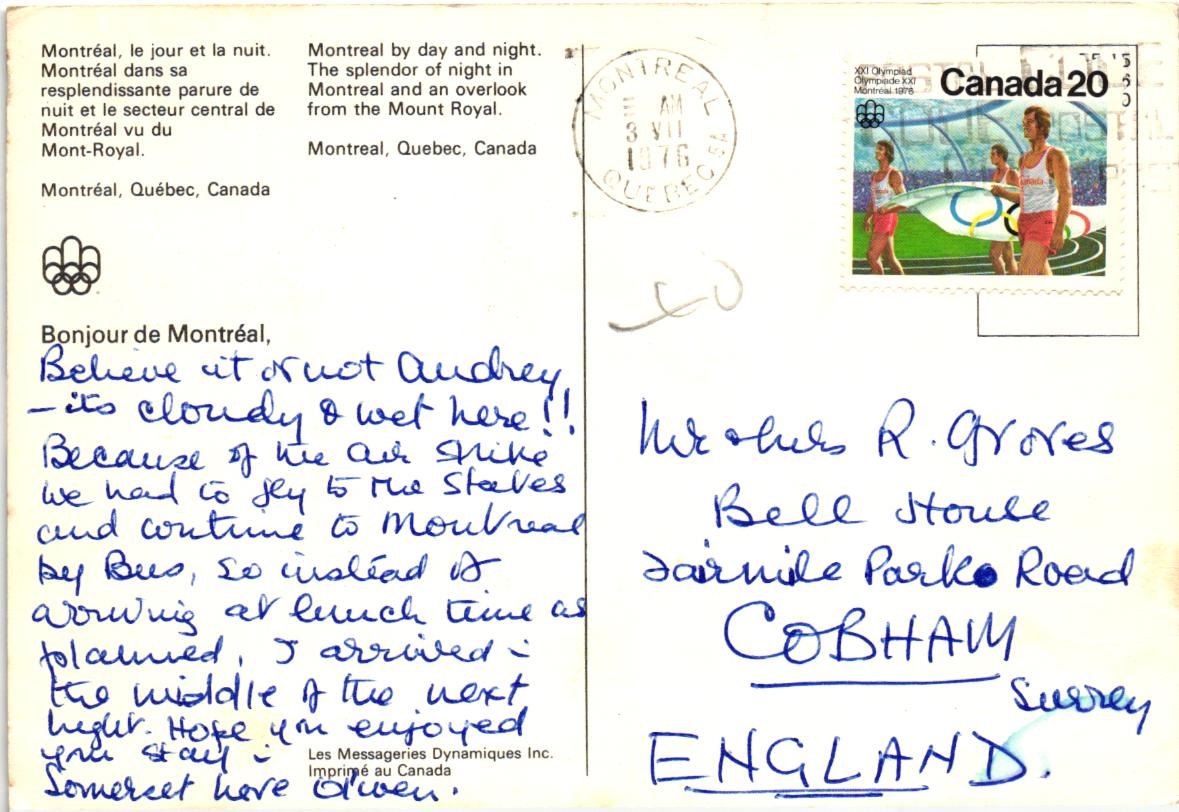 Montréal, le jour et la nuit.
Montréal dans sa
resplendissante parure de
nuit et le secteur central de
Montréal vu du
Mont-Royal.
Montréal, Québec, Canada
Montreal by day and night.
The splendor of night in
Montreal and an overlook
from the Mount Royal.
Montreal, Quebec, Canada
Bonjour de Montréal,
Believe it or not Audrey
- its cloudy & wet here!!
Because of the air strike
we had to fly to the States
and continue to Montreal
by Bus, so instead of
arriving at lunch time as
planned, I arrived in
the middle of the next
night. Hope you enjoyed
your stay in
Somerset love Olwen.
Les Messageries Dynamiques Inc.
Imprimé au Canada
MONTREAL
AM
3 VII
1976
QUEBEC 5A
XXI Olympiad
Olympiade XXI
Montréal 1976
Canada 20
Canada
Mr & Mrs R. Groves
Bell House
Fairmile Park Road
COBHAM
Surrey
ENGLAND.